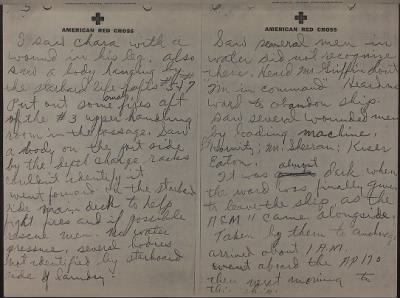 AMERICAN RED CROSS
I saw Chara with a
wound in his leg. Also
saw a body hanging by
the starboard life rafts #5+7
Put out some fires aft
of the #3 upper handling
room in the passage. Saw
a body on the port side
by the depth charge racks
couldn't identify it
went forward on the starboard
side main deck to help
fight fires and if possible
rescue men. No water
pressure, several bodies
not identified by starboard
side of laundry.
AMERICAN RED CROSS
Saw several men in
water did not recognize
there. Heard Mr. Griffin shout
"I'm in command"
word to abandon ship.
Saw several wounded men
by loading machine,
Mc Sherran; Kiser
Eaton.
It was almost dark when
the word was finally given
to leave the ship, as the
" came alongside
Taken by them to
arrived about 1 A.M.
went aboard the
then next morning to